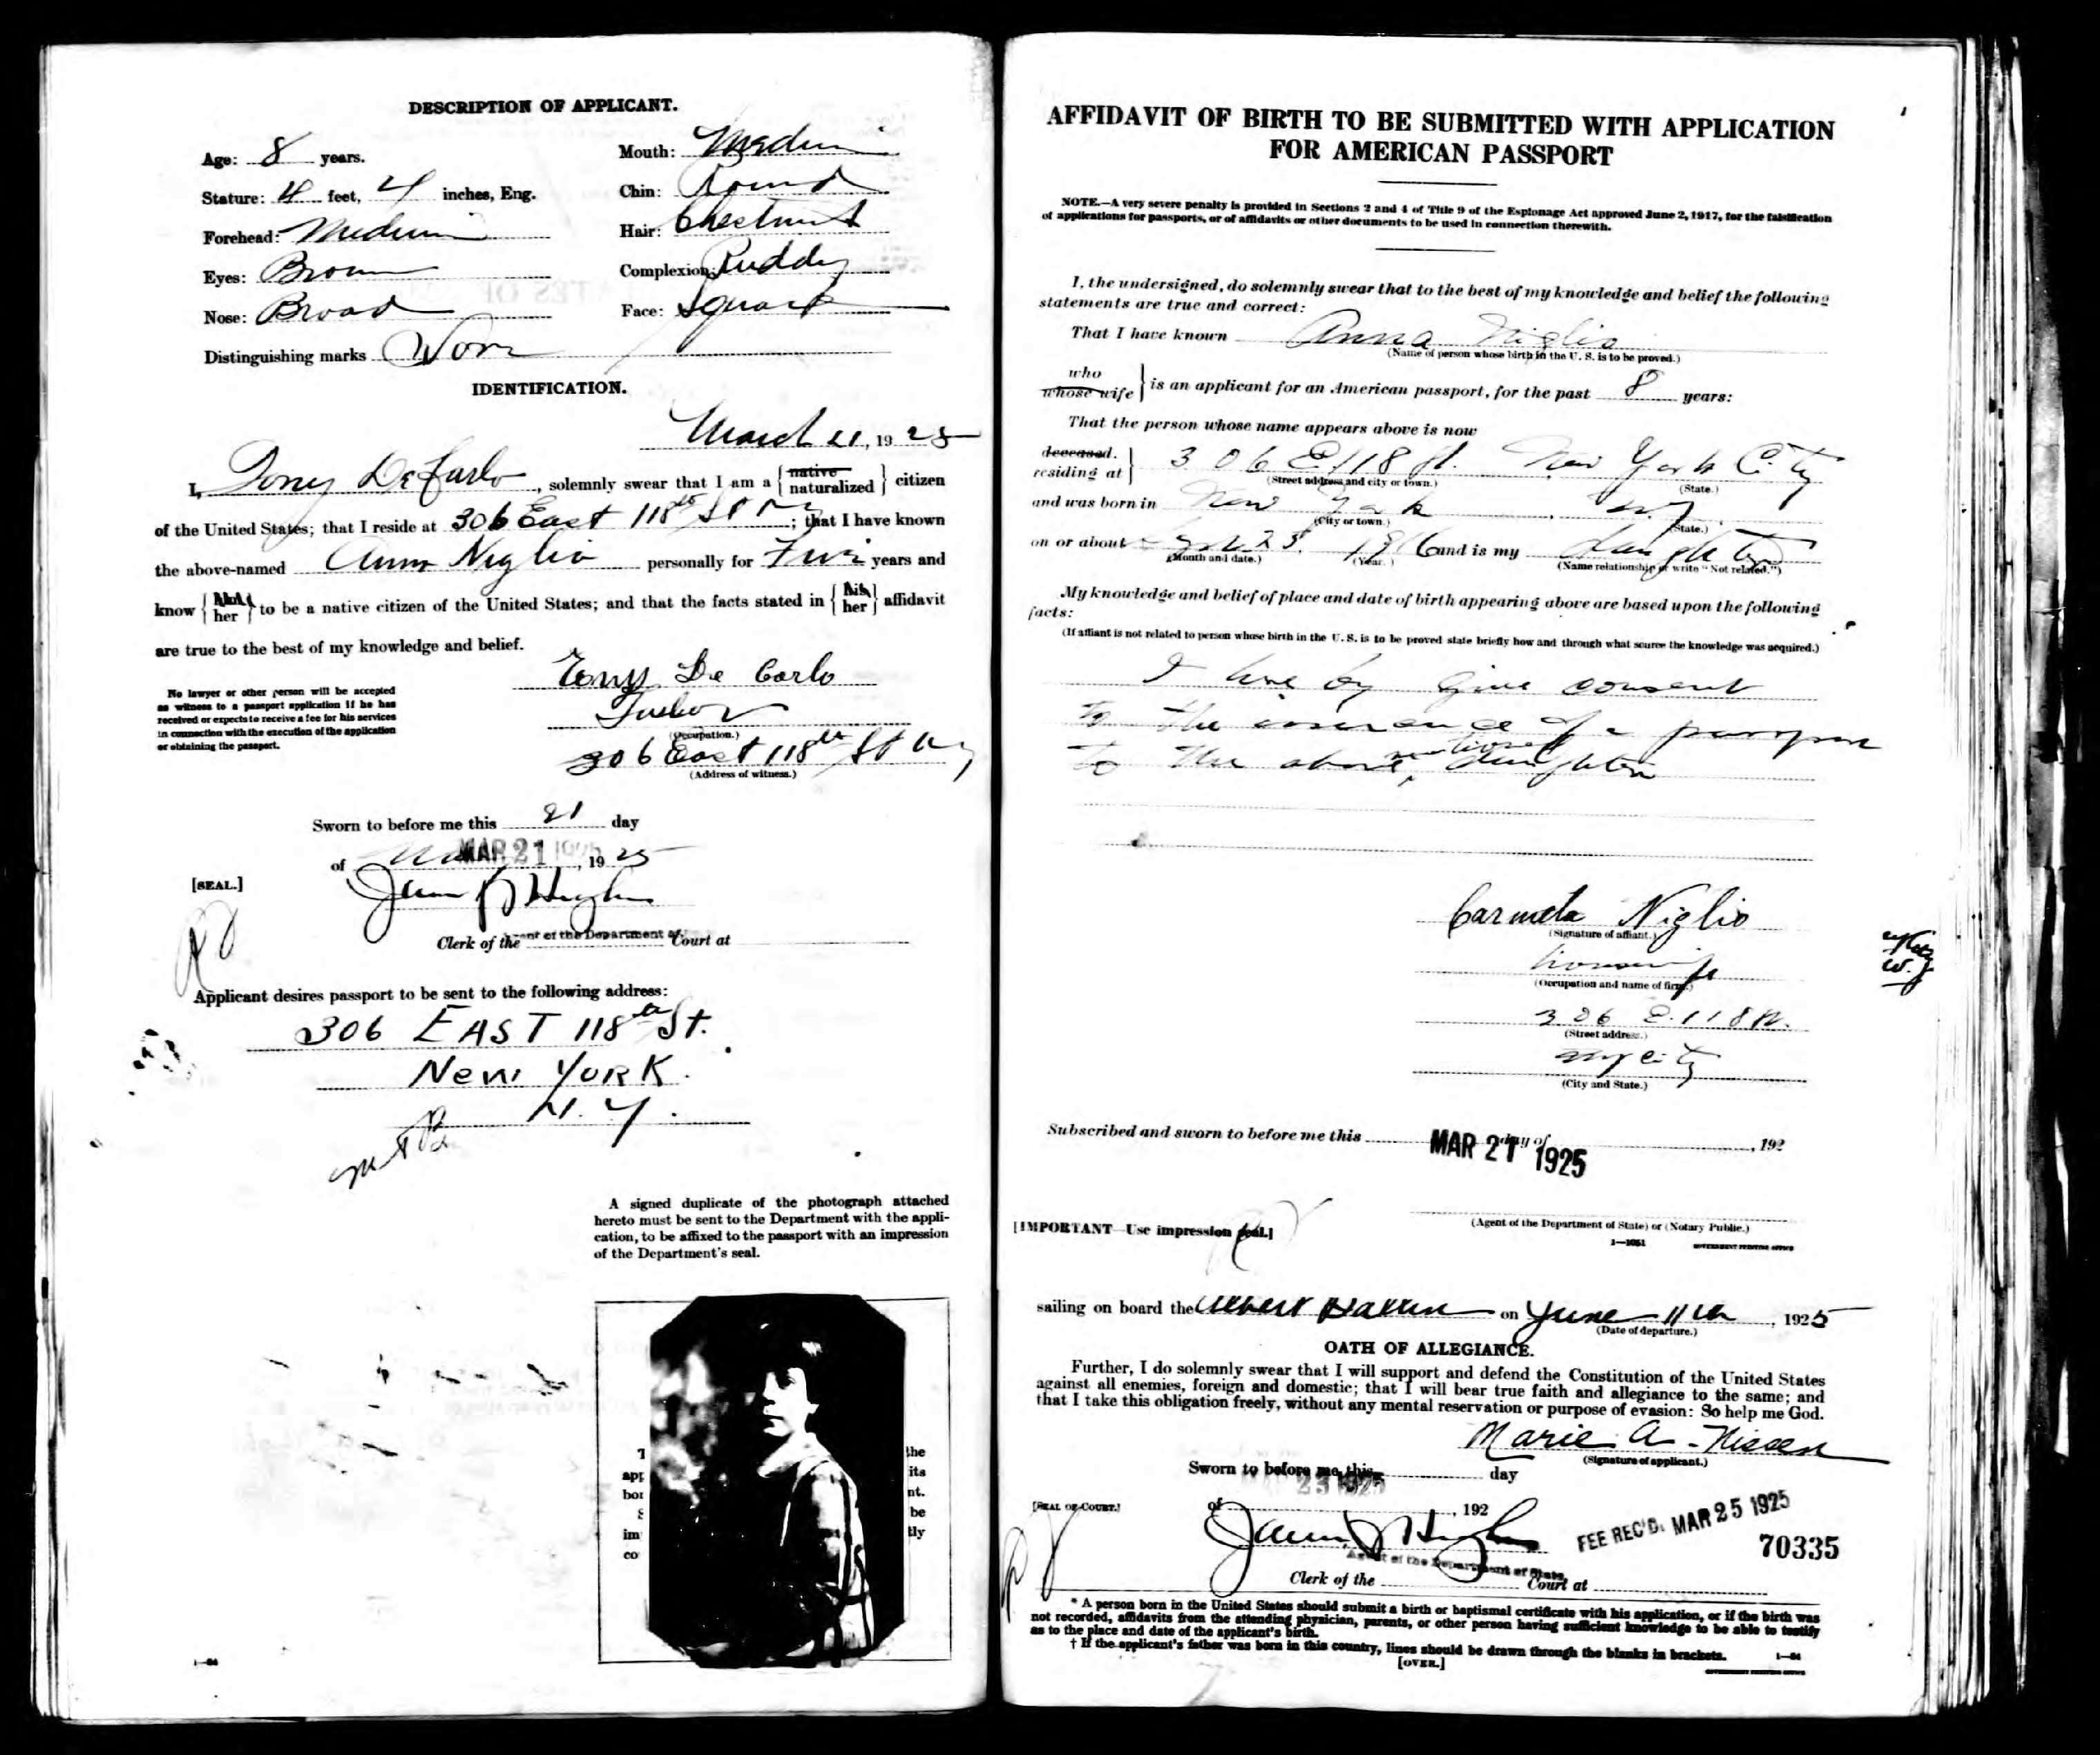 DESCRIPTION OF APPLICANT.
Age: 8 years.
Mouth: Medium
Stature: 4 feet, 4 inches, Eng.
Chin: Round
Forehead: Medium
Hair: Chestnut
Eyes: Brown
Complexion: Ruddy
Nose: Broad
Face: Square
Distinguishing marks
IDENTIFICATION.
March 21, 1925
I, Tony DeCarlo, solemnly swear that I am a { native naturalized } citizen
of the United States; that I reside at 306 East 118th St NY; that I have known
the above-named Anna Niglio personally for years and
know { him her } to be a native citizen of the United States; and that the facts stated in { his her } affidavit
are true to the best of my knowledge and belief.
Tony De Carlo
No lawyer or other person will be accepted
as witness to a passport application if he has
received or expects to receive a fee for his services
in connection with the execution of the application
or obtaining the passport.
(Occupation.)
306 East 118th St NY
(Address of witness.)
Sworn to before me this 21 day
of MAR 21 1925, 1925
[SEAL.]
Clerk of the Agent of the Department of Court at
Applicant desires passport to be sent to the following address:
306 EAST 118th St.
NEW YORK.
N. Y.
A signed duplicate of the photograph attached
hereto must be sent to the Department with the appli-
cation, to be affixed to the passport with an impression
of the Department's seal.
the
app its
bor nt.
be
im tly
co
1—64
AFFIDAVIT OF BIRTH TO BE SUBMITTED WITH APPLICATION
FOR AMERICAN PASSPORT
NOTE.—A very severe penalty is provided in Sections 2 and 4 of Title 9 of the Espionage Act approved June 2, 1917, for the falsification
of applications for passports, or of affidavits or other documents to be used in connection therewith.
I, the undersigned, do solemnly swear that to the best of my knowledge and belief the following
statements are true and correct:
That I have known Anna Niglio
(Name of person whose birth in the U. S. is to be proved.)
who
whose wife } is an applicant for an American passport, for the past 8 years:
That the person whose name appears above is now
deceased.
residing at } 306 E 118 St. New York City
(Street address and city or town.) (State.)
and was born in New York, N.Y.
(City or town.) (State.)
on or about 23, 1916 and is my daughter
(Month and date.) (Year.) (Name relationship or write "Not related.")
My knowledge and belief of place and date of birth appearing above are based upon the following
facts:
(If affiant is not related to person whose birth in the U. S. is to be proved state briefly how and through what source the knowledge was acquired.)
I here by give consent
to the issurance of a passport
to the above mentioned daughter
Carmela Niglio
(Signature of affiant.)
housewife
(Occupation and name of firm.)
306 E. 118 St.
(Street address.)
NY City
(City and State.)
Subscribed and sworn to before me this MAR 21 1925 day of, 192
(Agent of the Department of State) or (Notary Public.)
[IMPORTANT—Use impression seal.]
1—1051 GOVERNMENT PRINTING OFFICE
sailing on board the Albert Ballin on June 11th, 1925
(Date of departure.)
OATH OF ALLEGIANCE.
Further, I do solemnly swear that I will support and defend the Constitution of the United States
against all enemies, foreign and domestic; that I will bear true faith and allegiance to the same; and
that I take this obligation freely, without any mental reservation or purpose of evasion: So help me God.
Marie A. Nissen
(Signature of applicant.)
Sworn to before me this day
23 1925
[SEAL OF COURT.] of, 192
FEE REC'D. MAR 25 1925
70335
Agent of the Department of State
Clerk of the Court at
* A person born in the United States should submit a birth or baptismal certificate with his application, or if the birth was
not recorded, affidavits from the attending physician, parents, or other person having sufficient knowledge to be able to testify
as to the place and date of the applicant's birth.
† If the applicant's father was born in this country, lines should be drawn through the blanks in brackets. 1—64
[OVER.] GOVERNMENT PRINTING OFFICE